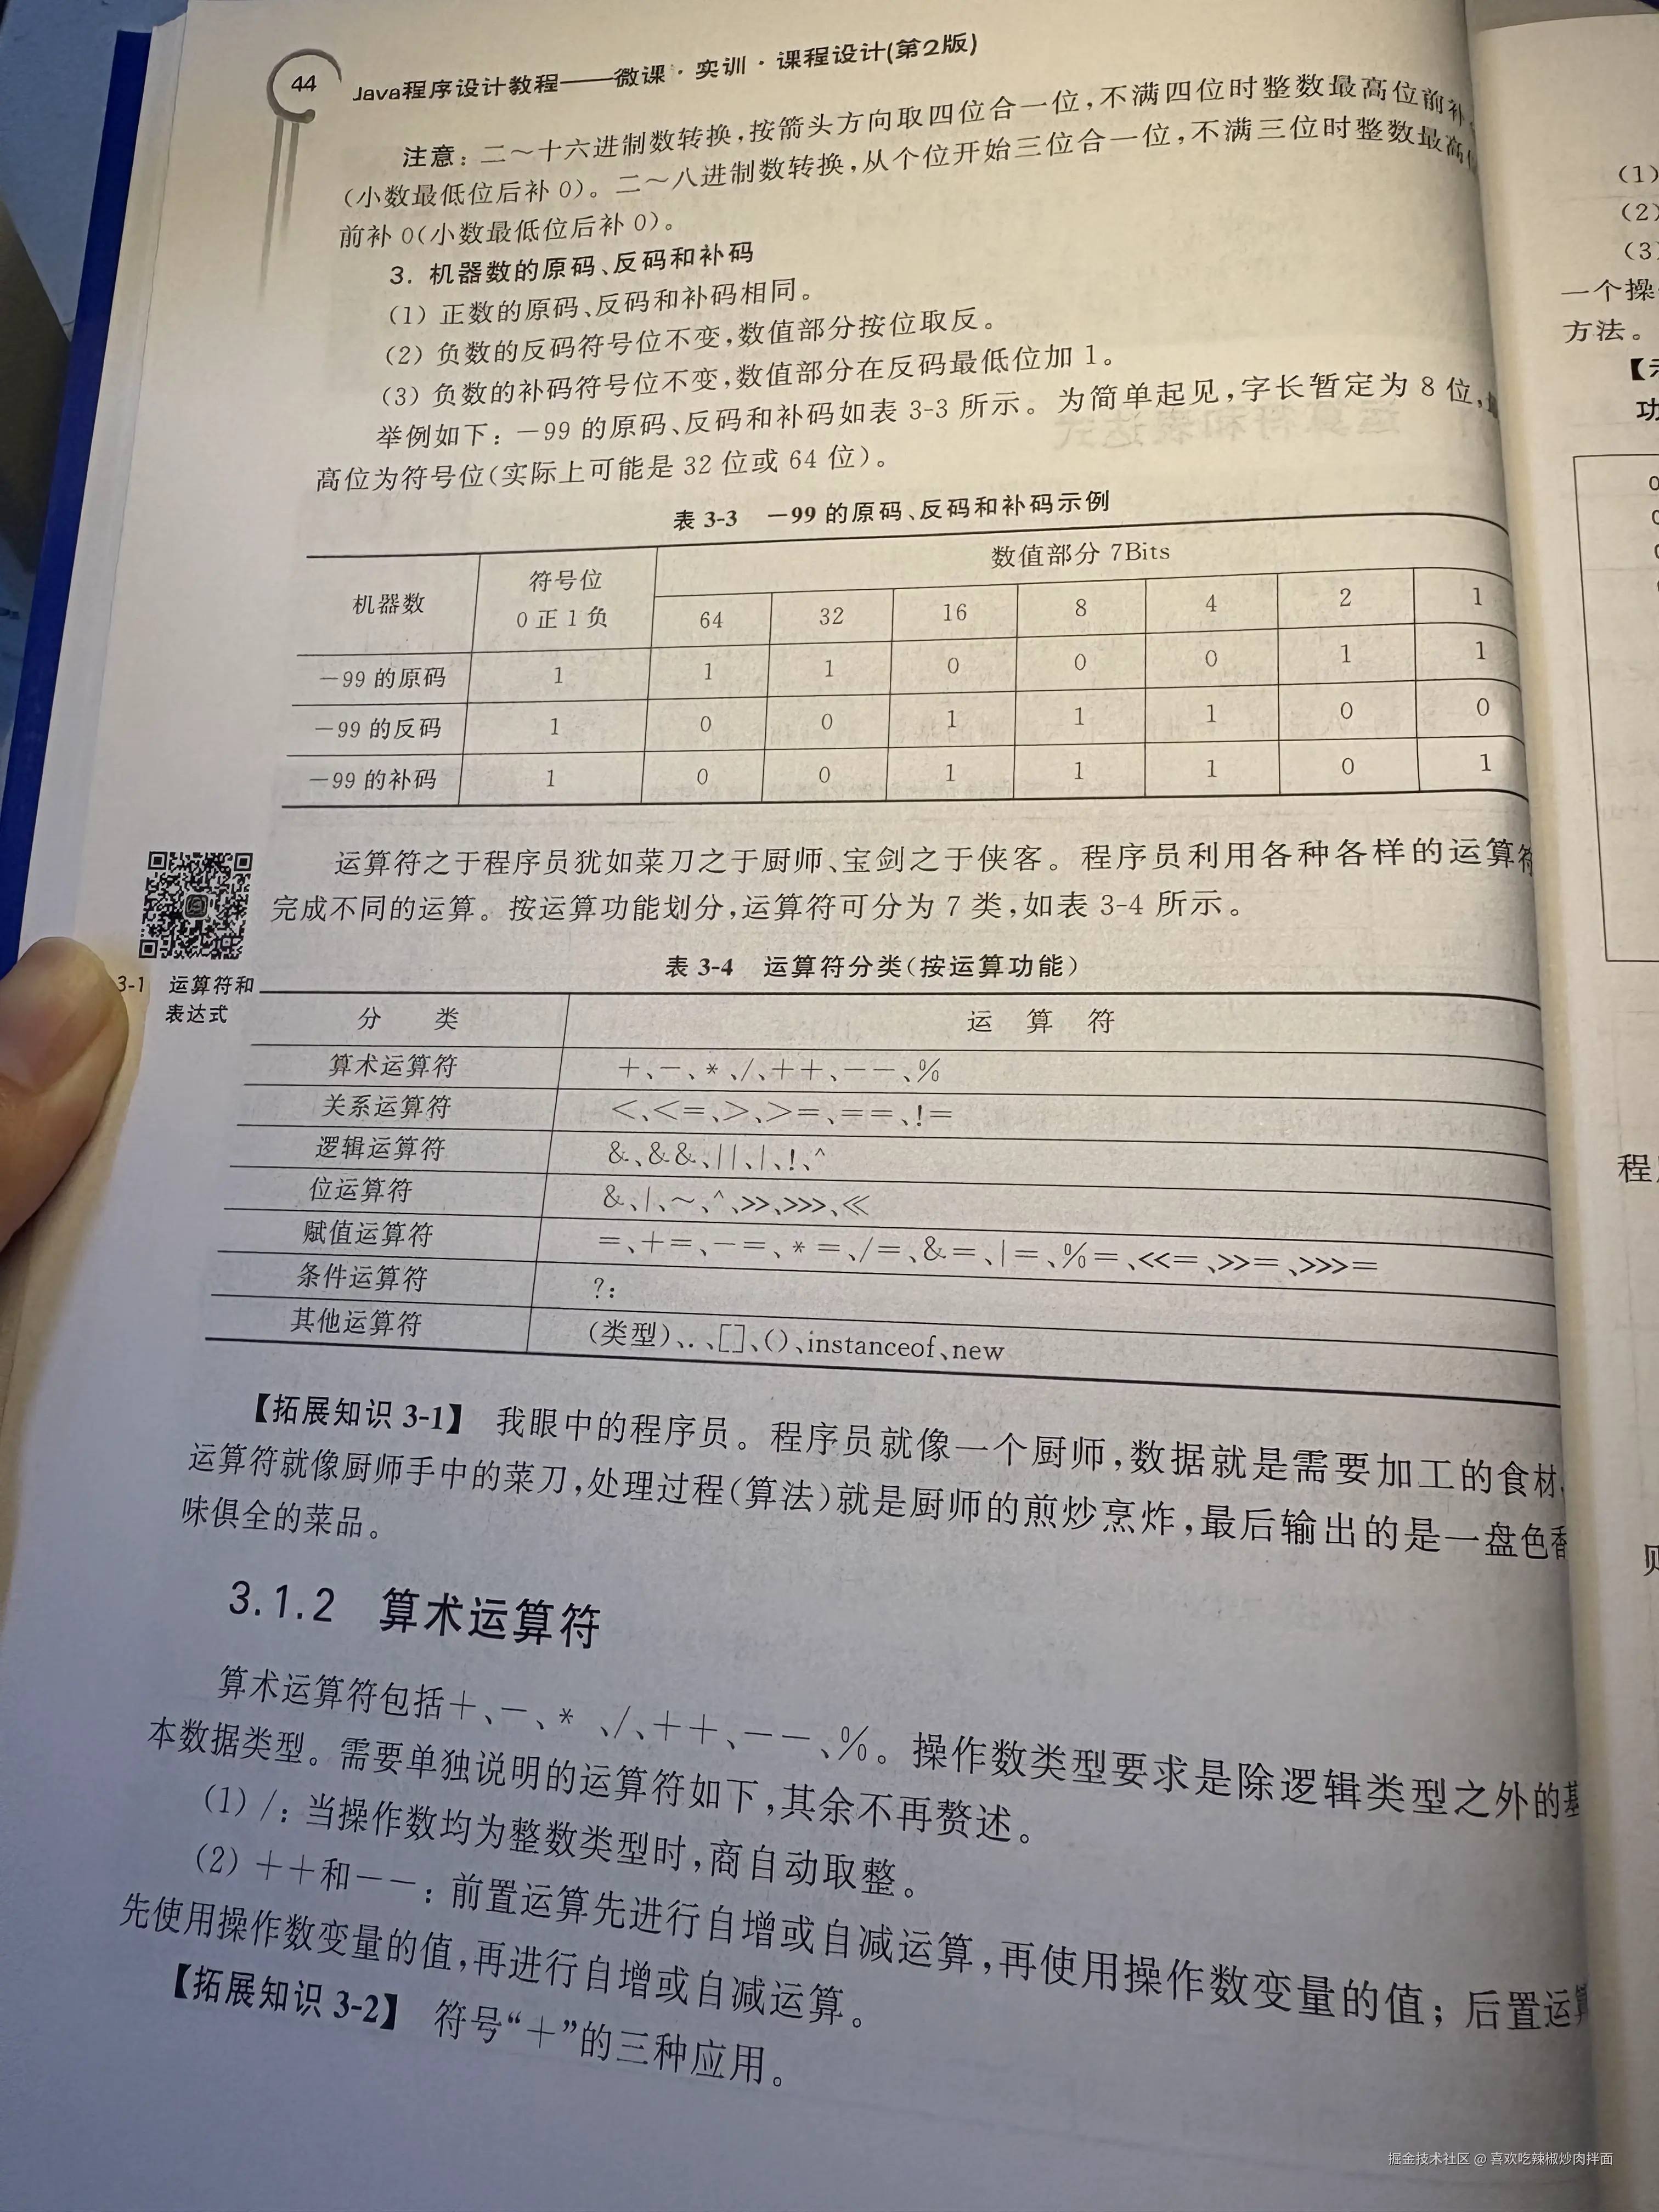 44
Java程序设计教程——微课·实训·课程设计(第2版)
注意:二～十六进制数转换,按箭头方向取四位合一位,不满四位时整数最高位前补
(小数最低位后补 0)。二～八进制数转换,从个位开始三位合一位,不满三位时整数最高
前补 0(小数最低位后补 0)。
3. 机器数的原码、反码和补码
(1) 正数的原码、反码和补码相同。
(2) 负数的反码符号位不变,数值部分按位取反。
(3) 负数的补码符号位不变,数值部分在反码最低位加 1。
举例如下:-99 的原码、反码和补码如表 3-3 所示。为简单起见,字长暂定为 8 位,
高位为符号位(实际上可能是 32 位或 64 位)。
表 3-3 -99 的原码、反码和补码示例
机器数 符号位 0 正 1 负 数值部分 7Bits
64 32 16 8 4 2 1
-99 的原码 1 1 1 0 0 0 1 1
-99 的反码 1 0 0 1 1 1 0 0
-99 的补码 1 0 0 1 1 1 0 1
运算符之于程序员犹如菜刀之于厨师、宝剑之于侠客。程序员利用各种各样的运算符
完成不同的运算。按运算功能划分,运算符可分为 7 类,如表 3-4 所示。
3-1 运算符和
表达式
表 3-4 运算符分类(按运算功能)
分 类 运 算 符
算术运算符 +、-、*、/、++、--、%
关系运算符 <、<=、>、>=、==、!=
逻辑运算符 &、&&、||、|、!、^
位运算符 &、|、~、^、>>、>>>、<<
赋值运算符 =、+=、-=、*=、/=、&=、|=、%=、<<=、>>=、>>>=
条件运算符 ?:
其他运算符 (类型)、.、[]、()、instanceof、new
【拓展知识 3-1】 我眼中的程序员。程序员就像一个厨师,数据就是需要加工的食材,
运算符就像厨师手中的菜刀,处理过程(算法)就是厨师的煎炒烹炸,最后输出的是一盘色香
味俱全的菜品。
3.1.2 算术运算符
算术运算符包括+、-、*、/、++、--、%。操作数类型要求是除逻辑类型之外的基
本数据类型。需要单独说明的运算符如下,其余不再赘述。
(1) /:当操作数均为整数类型时,商自动取整。
(2) ++和--:前置运算先进行自增或自减运算,再使用操作数变量的值;后置运算
先使用操作数变量的值,再进行自增或自减运算。
【拓展知识 3-2】 符号“+”的三种应用。
(1)
(2)
(3)
一个操
方法。
掘金技术社区 @ 喜欢吃辣椒炒肉拌面